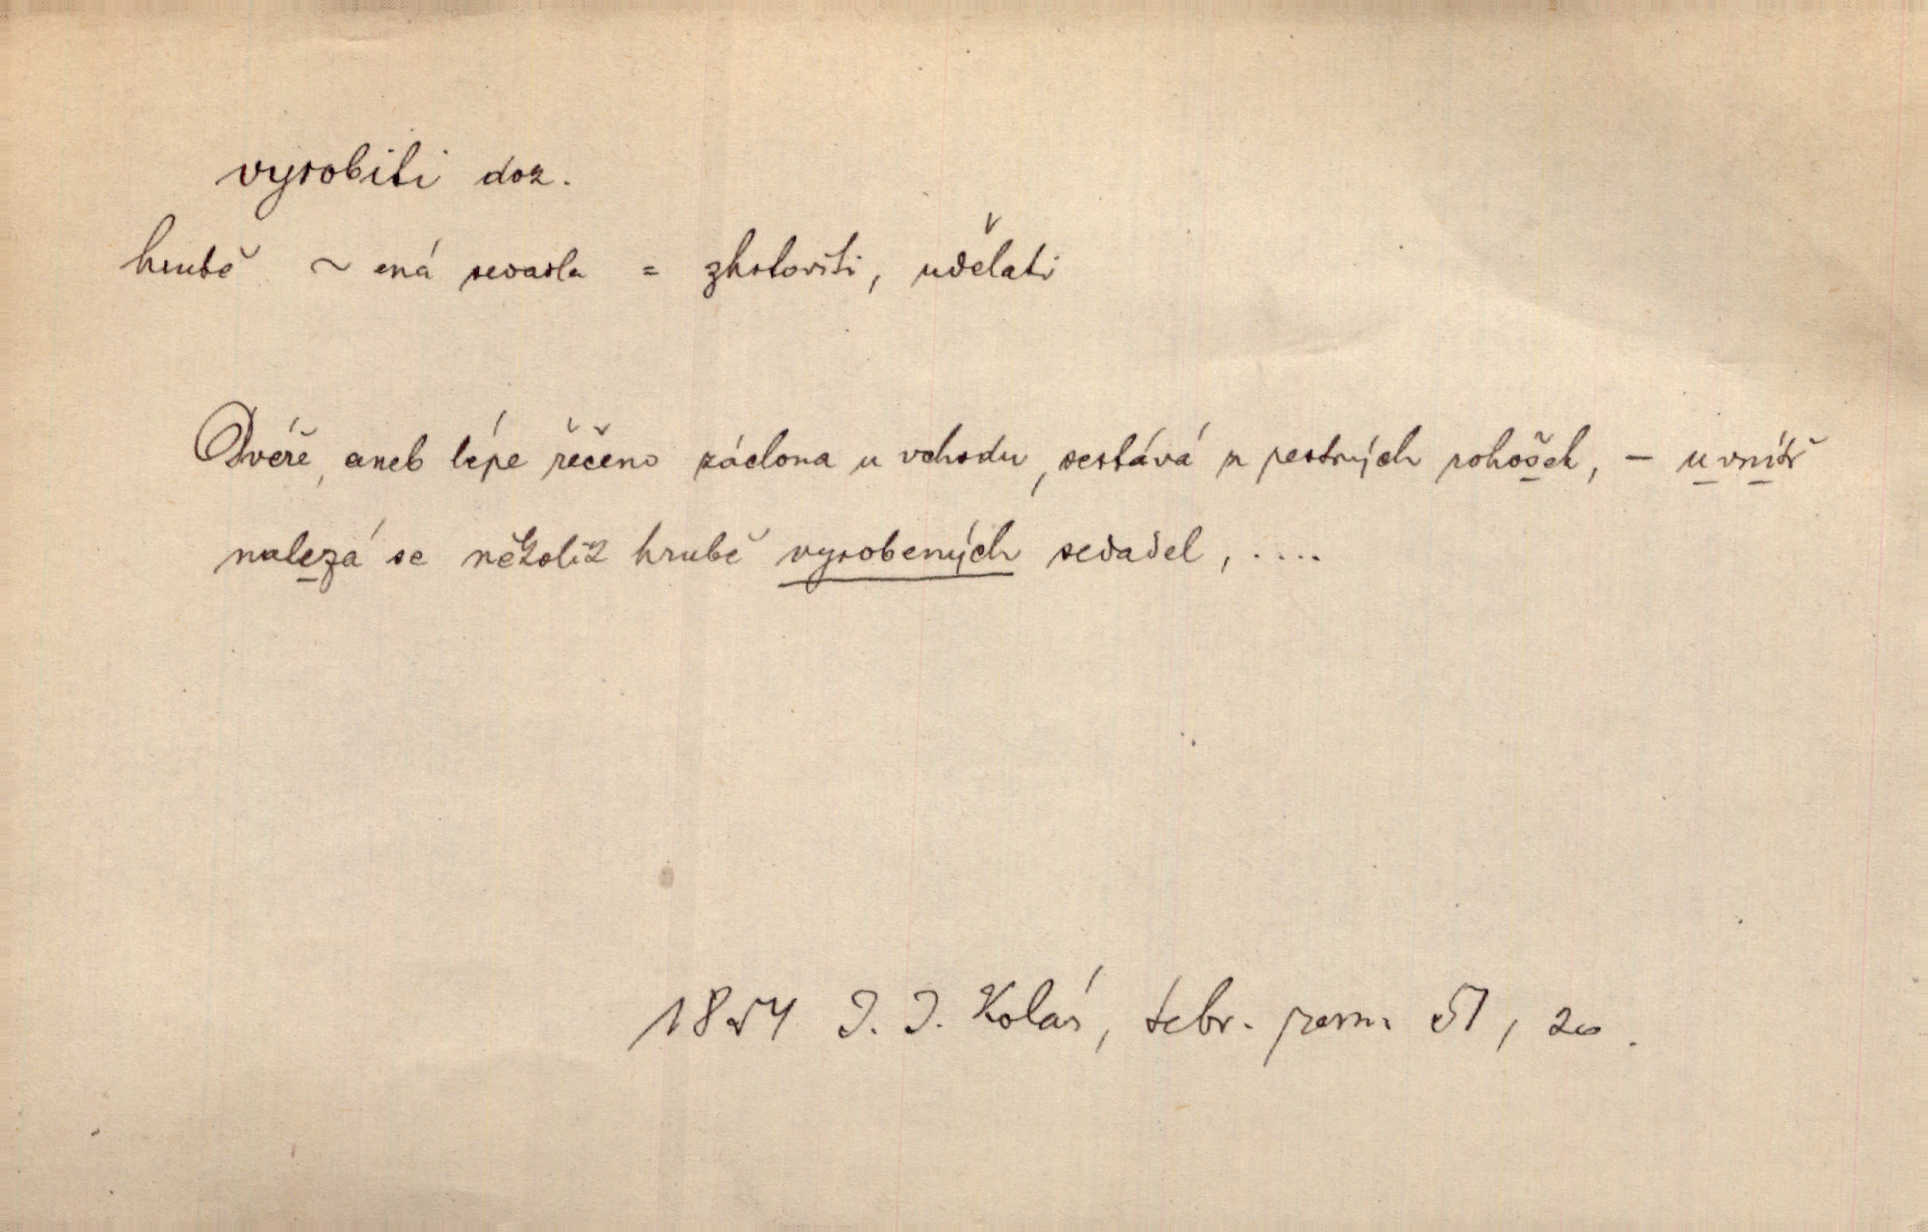 vyrobiti dok.
hrubě ~ ená sedadla = zhotoviti, udělati
Dvéře, aneb lépe řečeno záclona u vchodu, sestává z pestrých rohožek, – u vnitř
nalezá se několik hrubě vyrobených sedadel, ....
1854 J. J. Kolár, 51, 20.